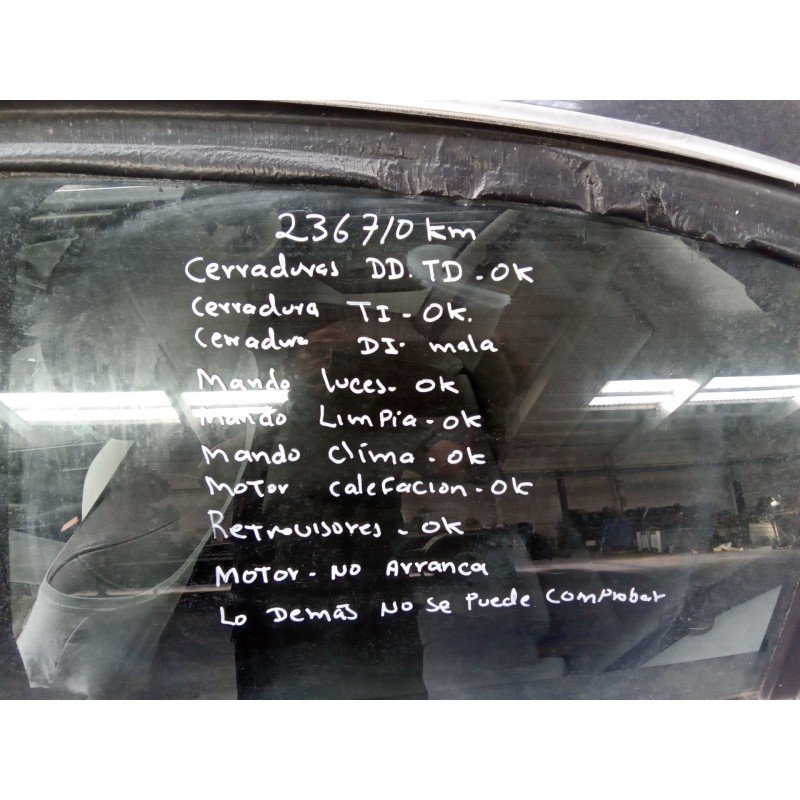 236710 km
Cerraduras DD. TD - OK
Cerradura TI - OK.
Cerradura DI. mala
Mando luces - OK
Mando Limpia - OK
Mando clima - OK
Motor calefacion - OK
Retrovisores - OK
Motor - No Arranca
Lo Demás No se Puede Comprobar